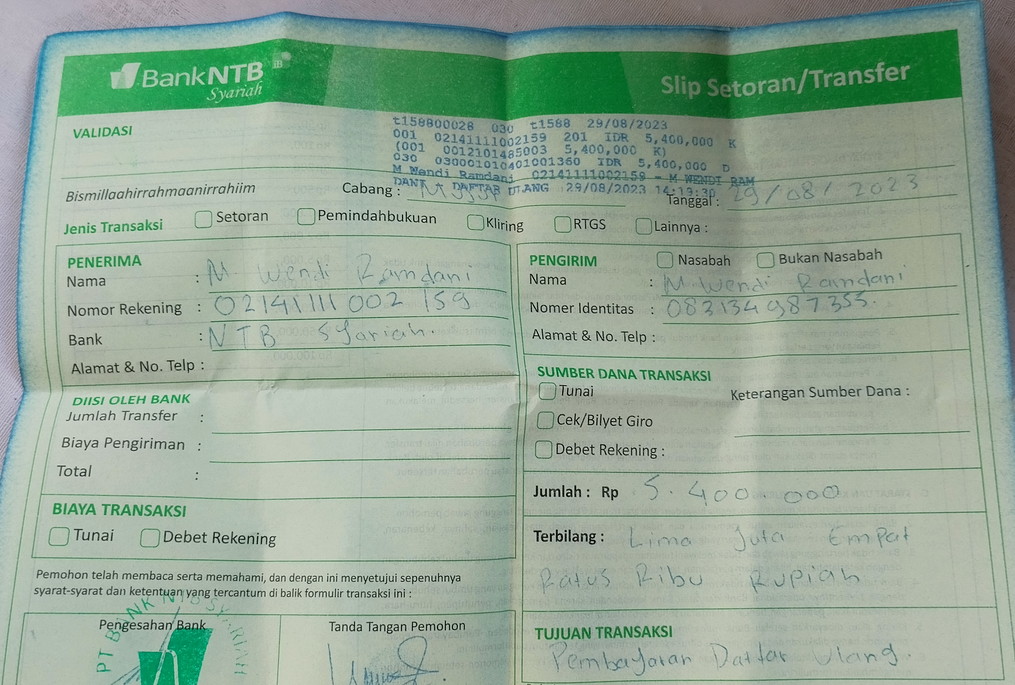 BankNTB
Syariah
Slip Setoran/Transfer
VALIDASI
t158800028 030 t1588 29/08/2023
001 02141111002159 201 IDR 5,400,000 K
(001 0012101485003 5,400,000 K)
030 030001010401001360 IDR 5,400,000 D
M Wendi Ramdani 02141111002159 - M WENDI RAM
DANI DAFTAR ULANG 29/08/2023 14:13:30
Bismillaahirrahmaanirrahiim
Cabang :
Tanggal : 29/08/2023
Jenis Transaksi Setoran Pemindahbukuan Kliring RTGS Lainnya :
PENERIMA
Nama : M. Wendi Ramdani
Nomor Rekening : 02141111002159
Bank : NTB Syariah.
Alamat & No. Telp :
PENGIRIM Nasabah Bukan Nasabah
Nama : M Wendi Ramdani
Nomer Identitas : 083134987355.
Alamat & No. Telp :
DIISI OLEH BANK
Jumlah Transfer :
Biaya Pengiriman :
Total :
SUMBER DANA TRANSAKSI
Tunai Keterangan Sumber Dana :
Cek/Bilyet Giro
Debet Rekening :
BIAYA TRANSAKSI
Tunai Debet Rekening
Jumlah : Rp 5.400.000
Terbilang : Lima Juta Empat
Ratus Ribu Rupiah
Pemohon telah membaca serta memahami, dan dengan ini menyetujui sepenuhnya
syarat-syarat dan ketentuan yang tercantum di balik formulir transaksi ini :
Pengesahan Bank
PT BANK NTB SYARIAH
Tanda Tangan Pemohon
TUJUAN TRANSAKSI
Pembayaran Daftar Ulang.